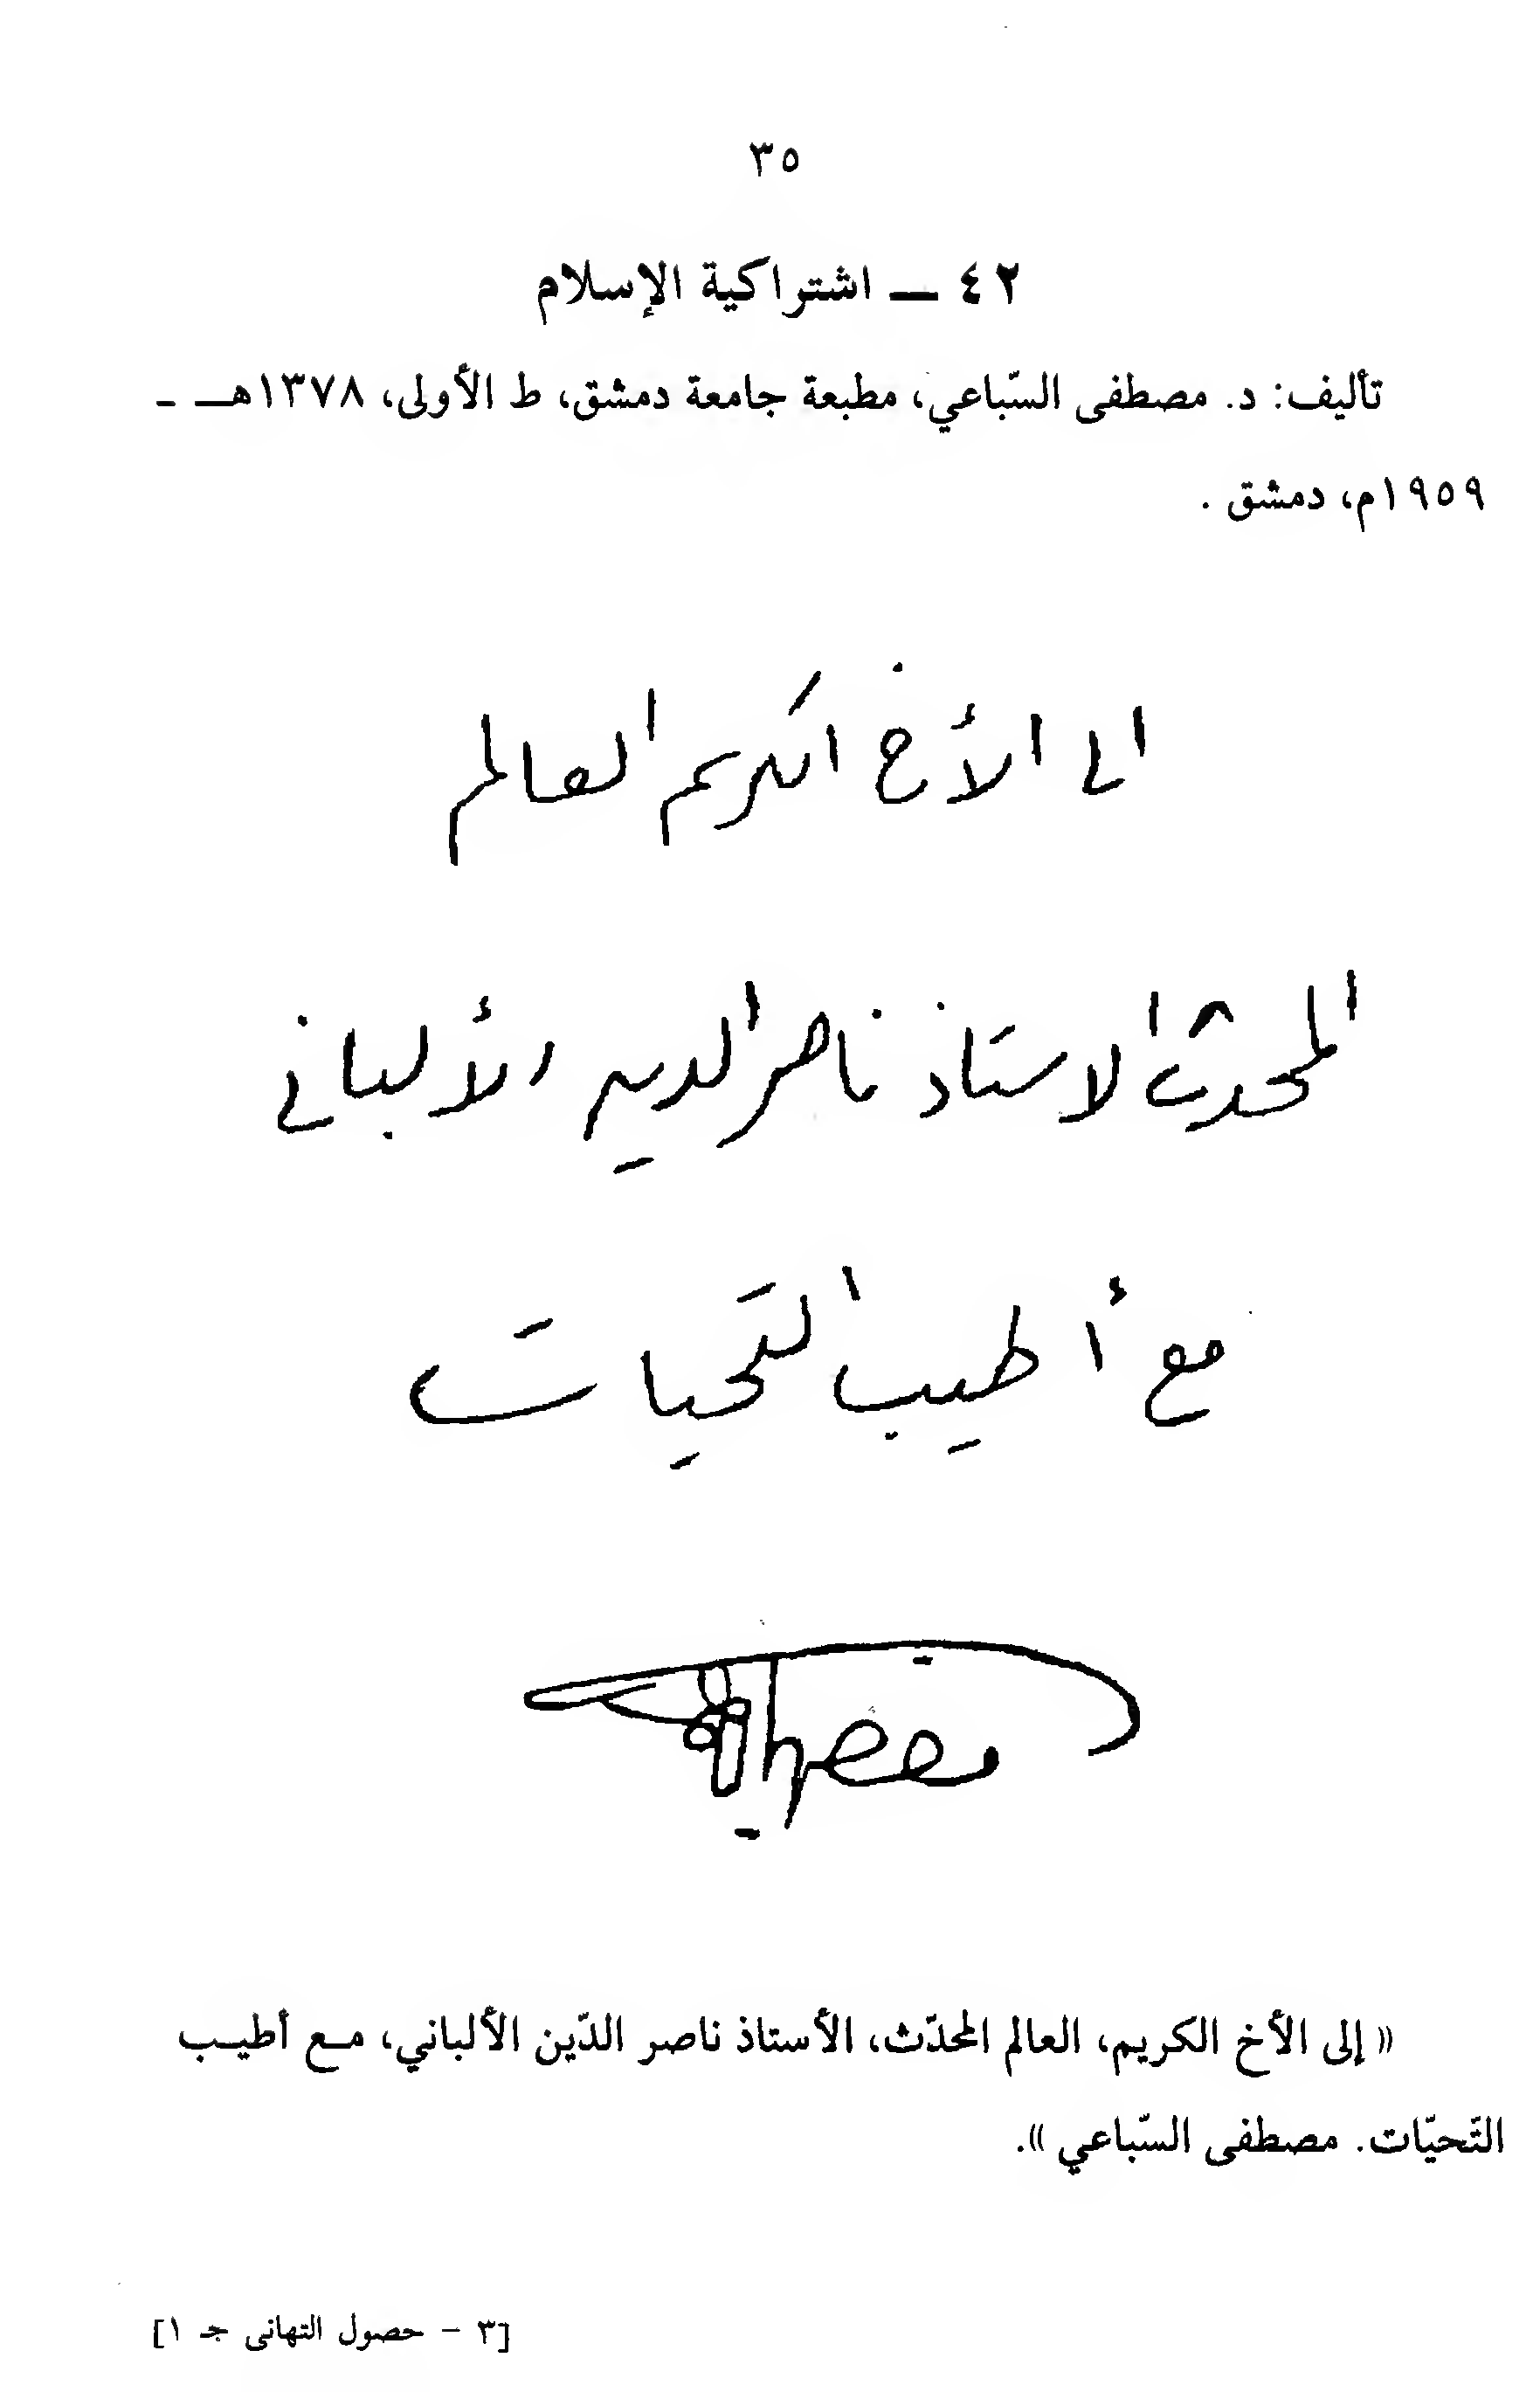 ٣٥
٤٢ — اشتراكية الإسلام
تأليف: د. مصطفى السّباعي، مطبعة جامعة دمشق، ط الأولى، ١٣٧٨هـ -
١٩٥٩م، دمشق .
الى الأخ الكريم العالم
المحدث الاستاذ ناصر الدين الألباني
مع أطيب التحيات
مصطفى السباعي
(( إلى الأخ الكريم، العالم المحدّث، الأستاذ ناصر الدّين الألباني، مع أطيب
التّحيّات. مصطفى السّباعي )).
[٣ - حصول التهاني جـ ١]